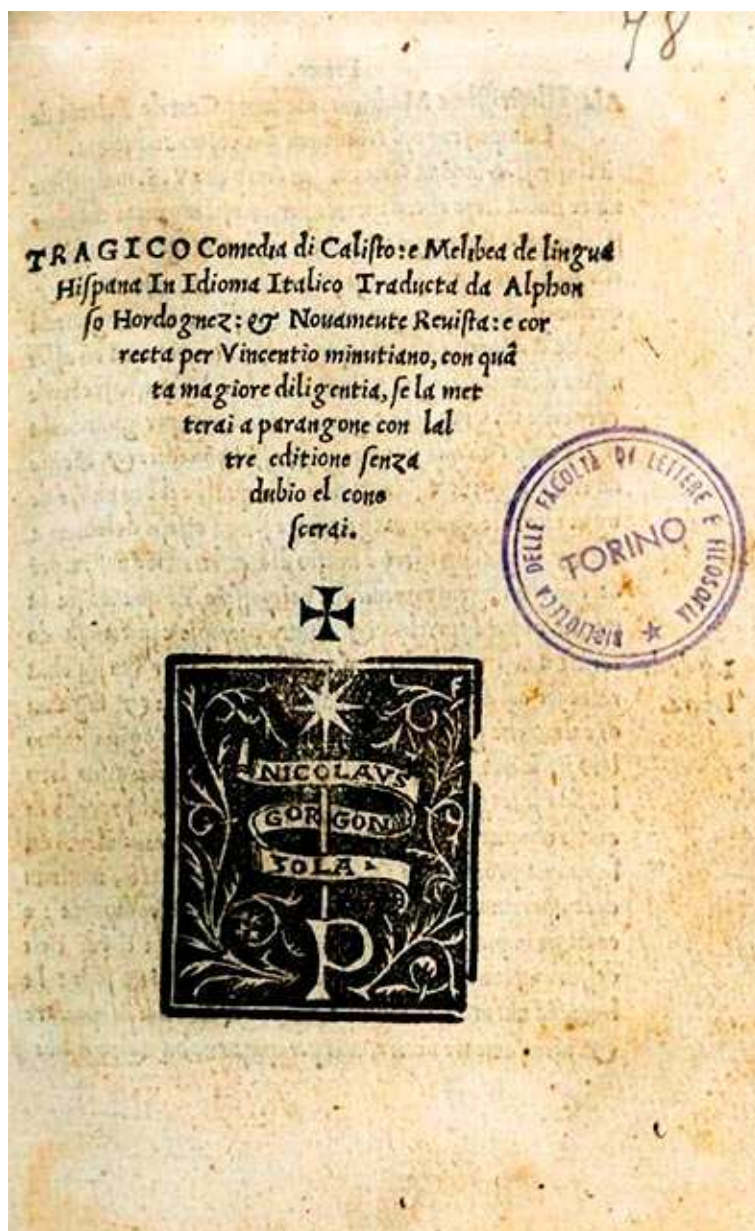 78
TRAGICO Comedia di Calisto: e Melibea de lingua
Hispana In Idioma Italico Traducta da Alphon
so Hordognez: & Nouamente Reuista: e cor
recta per Vincentio minutiano, con quã
ta magiore diligentia, se la met
terai a parangone con lal
tre editione senza
dubio el cono
scerai.
BIBLIOTECA DELLE FACOLTÀ DI LETTERE E FILOSOFIA
TORINO
NICOLAVS
GORGON
ZOLA
P